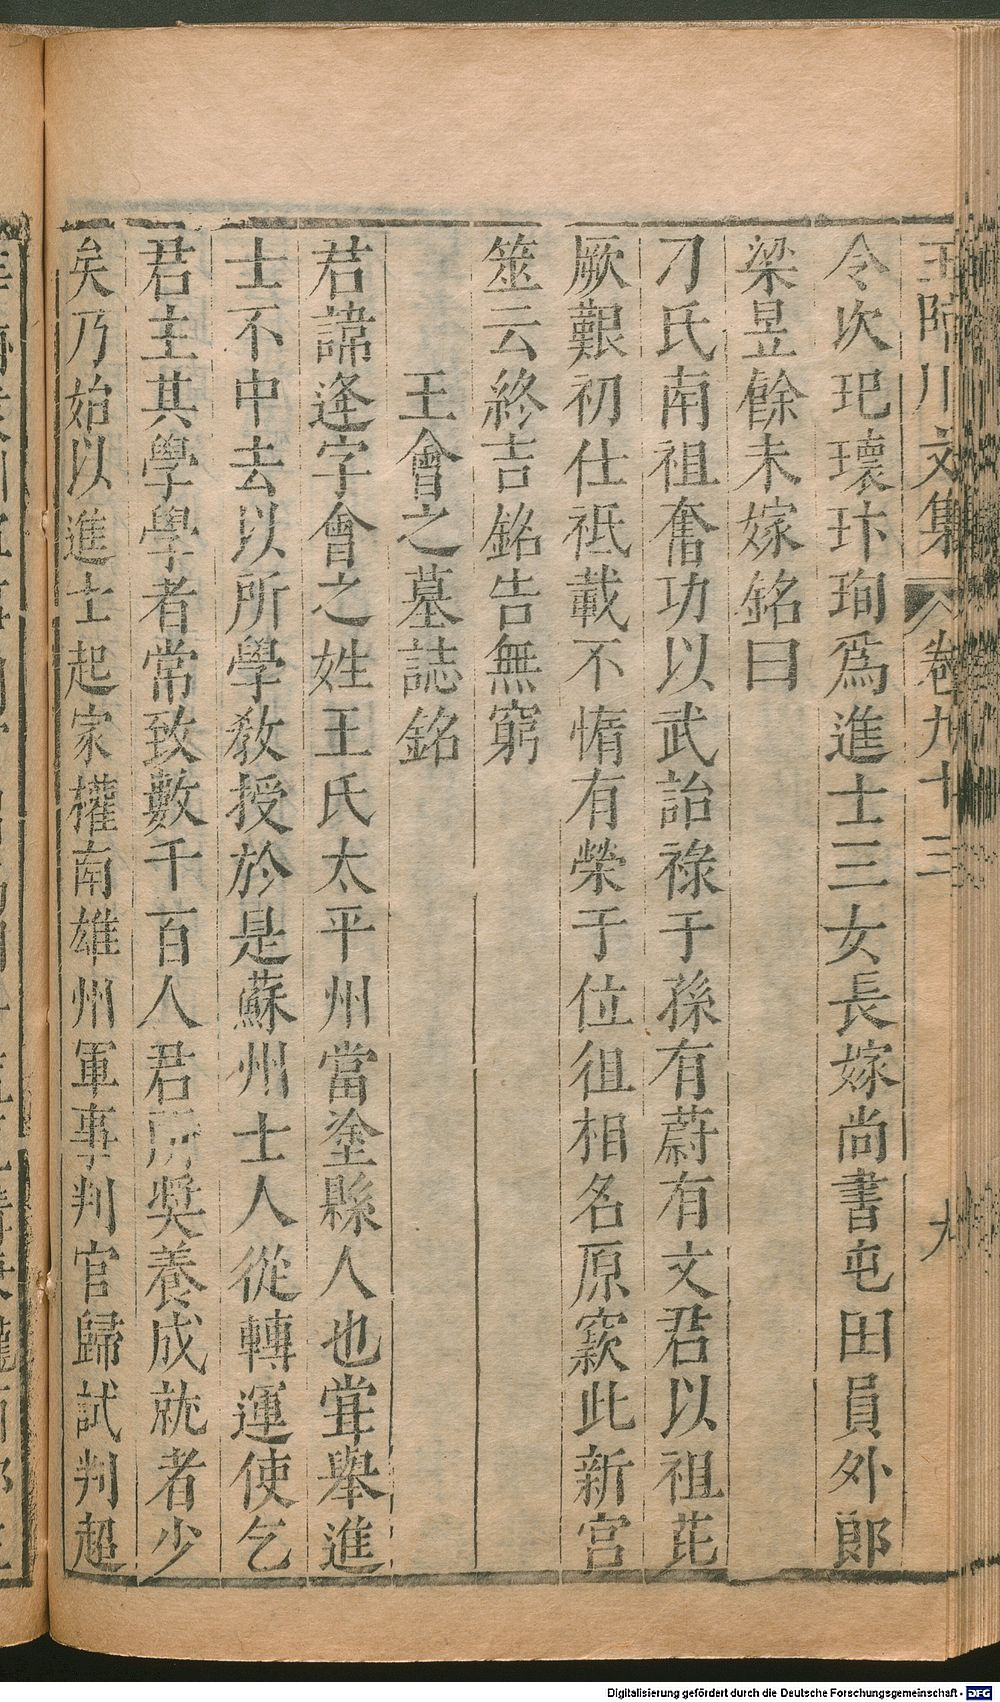 王臨川文集 卷九十三 九
令次玘瓌玣珣爲進士三女長嫁尚書屯田員外郎
梁昱餘未嫁銘曰
刁氏南祖奮功以武詒祿于孫有蔚有文君以祖芘
厥艱初仕祗載不惰有榮于位徂相名原窾此新宫
筮云終吉銘告無窮
王會之墓誌銘
君諱逢字會之姓王氏太平州當塗縣人也甞舉進
士不中去以所學敎授於是蘇州士人從轉運使乞
君主其學學者常致數千百人君所奬養成就者少
矣乃始以進士起家權南雄州軍事判官歸試判超
Digitalisierung gefördert durch die Deutsche Forschungsgemeinschaft - DFG